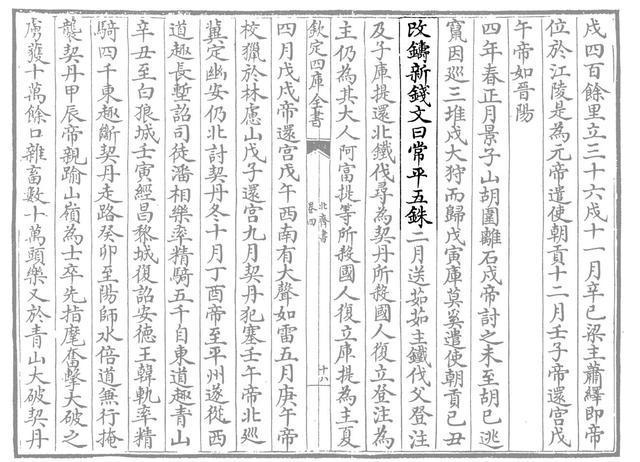 戍四百餘里立三十六戍十一月辛巳梁主蕭繹即帝
位於江陵是為元帝遣使朝貢十二月壬子帝還宮戊
午帝如晉陽
四年春正月景子山胡圍離石戍帝討之未至胡已逃
竄因巡三堆戍大狩而歸戊寅庫莫奚遣使朝貢己丑
改鑄新錢文曰常平五銖二月送茹茹主鐵伐父登注
及子庫提還北鐵伐尋為契丹所殺國人復立登注為
主仍為其大人阿富提等所殺國人復立庫提為主夏
欽定四庫全書
北齊書
卷四
十八
四月戊戌帝還宮戊午西南有大聲如雷五月庚午帝
校獵於林慮山戊子還宮九月契丹犯塞壬午帝北巡
冀定幽安仍北討契丹冬十月丁酉帝至平州遂從西
道趣長塹詔司徒潘相樂率精騎五千自東道趣青山
辛丑至白狼城壬寅經昌黎城復詔安德王韓軌率精
騎四千東趣斷契丹走路癸卯至陽師水倍道無行掩
襲契丹甲辰帝親踰山嶺為士卒先指麾奮擊大破之
虜獲十萬餘口雜畜數十萬頭樂又於青山大破契丹